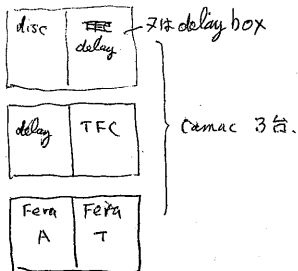 disc TFC delay 又は delay box
delay TFC
Camac 3台.
Fera A Fera T